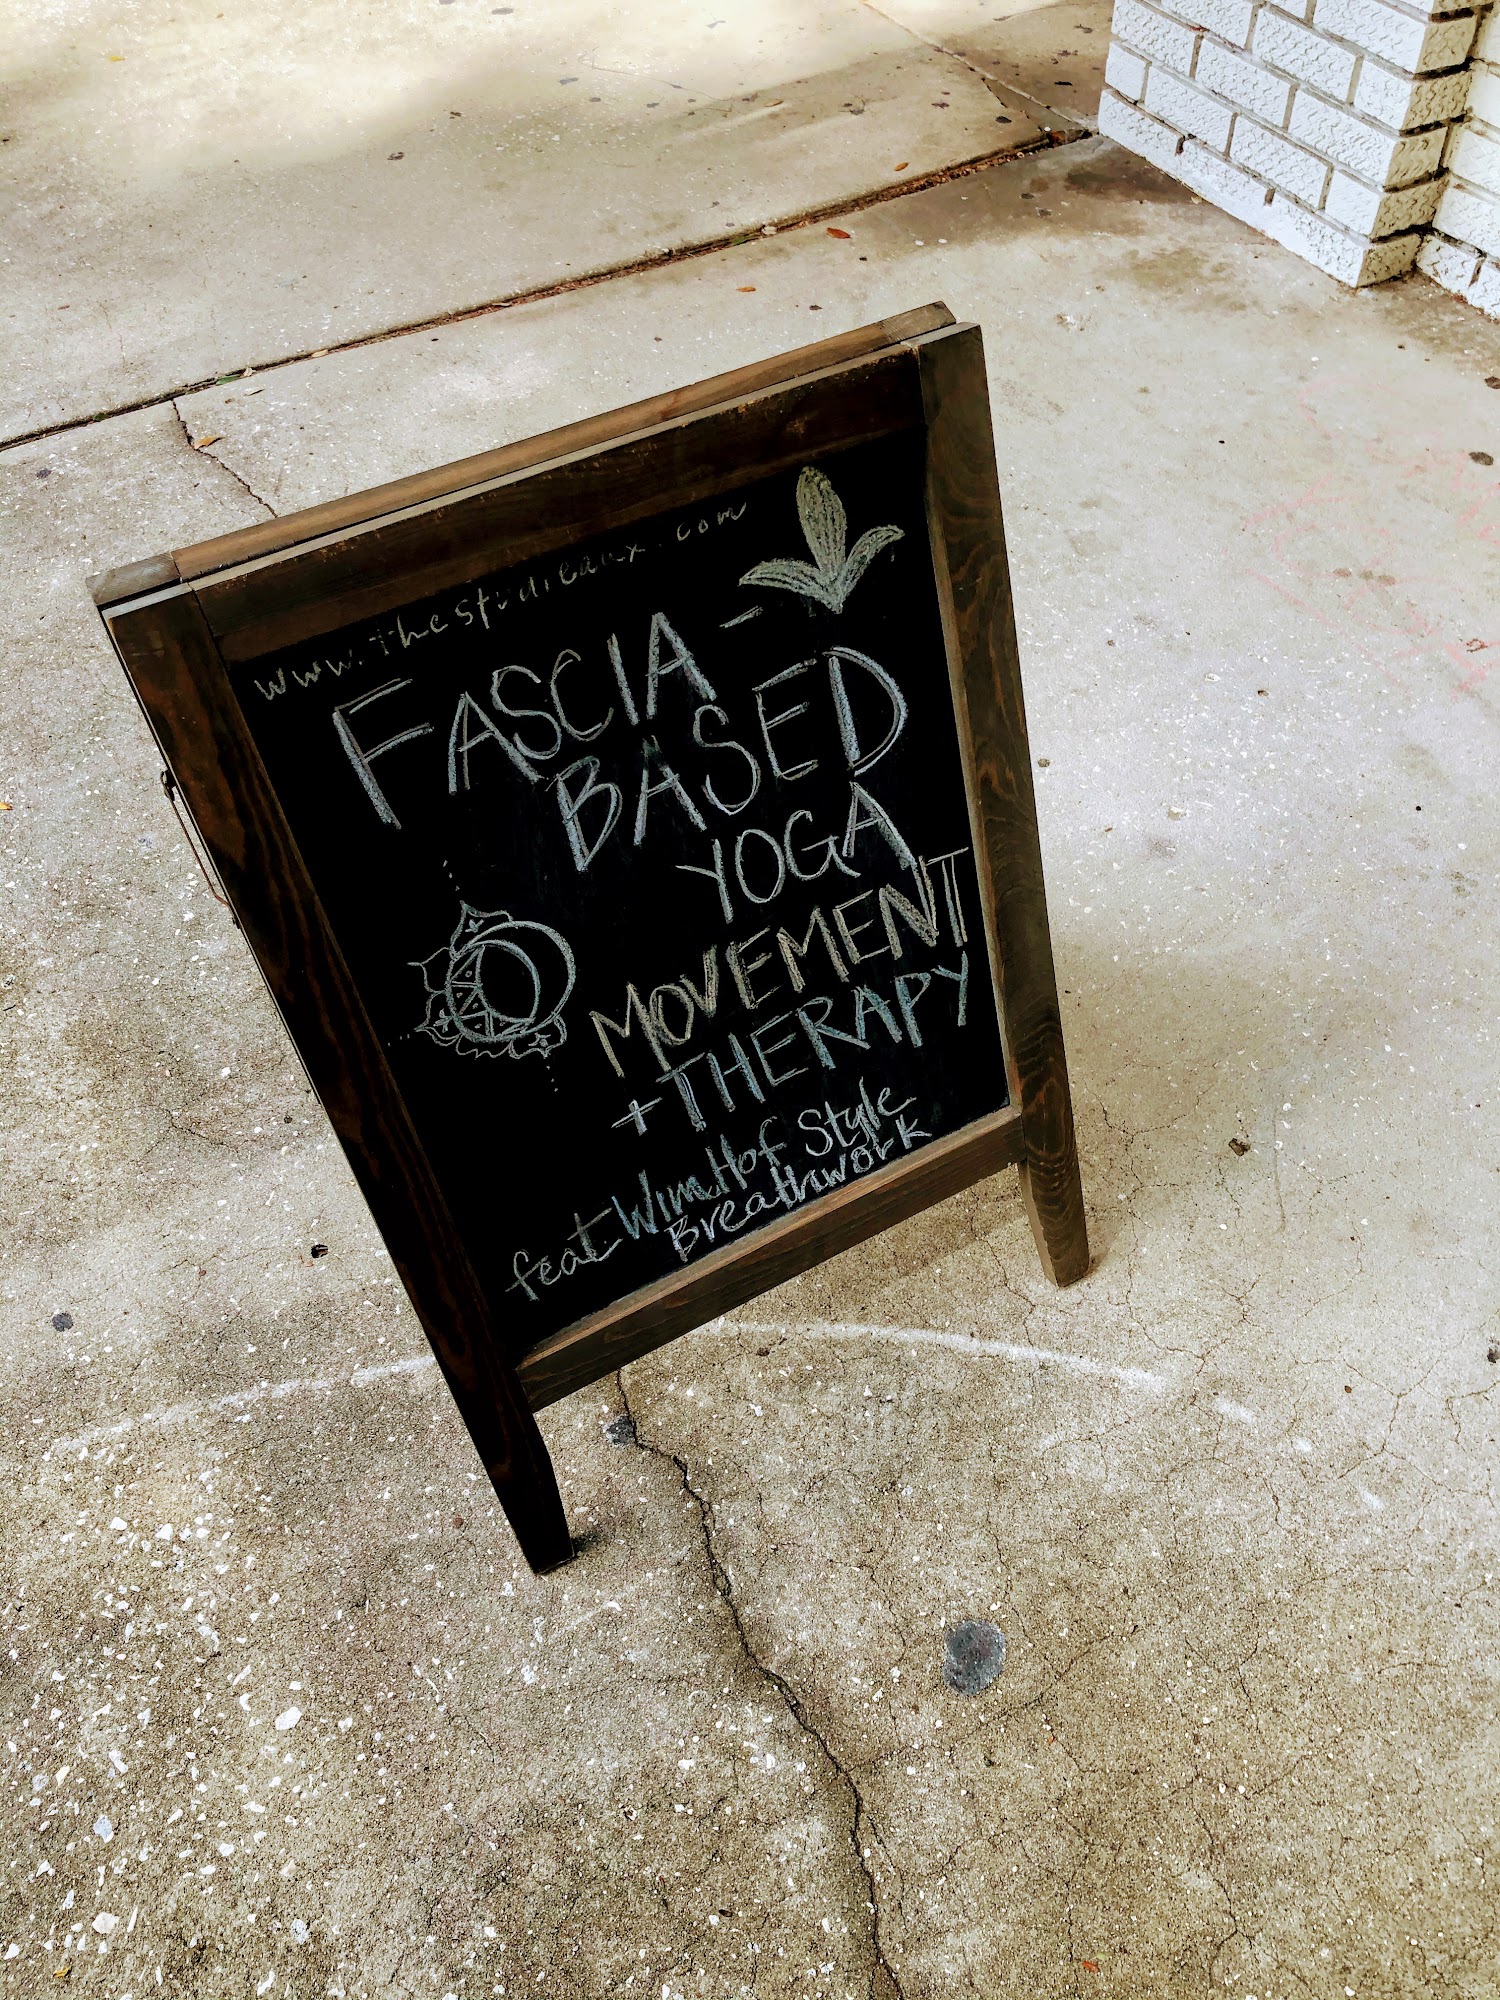 www.thestudieaux.com
FASCIA-
BASED
YOGA
MOVEMENT
+ THERAPY
feat. Wim Hof Style
Breathwork